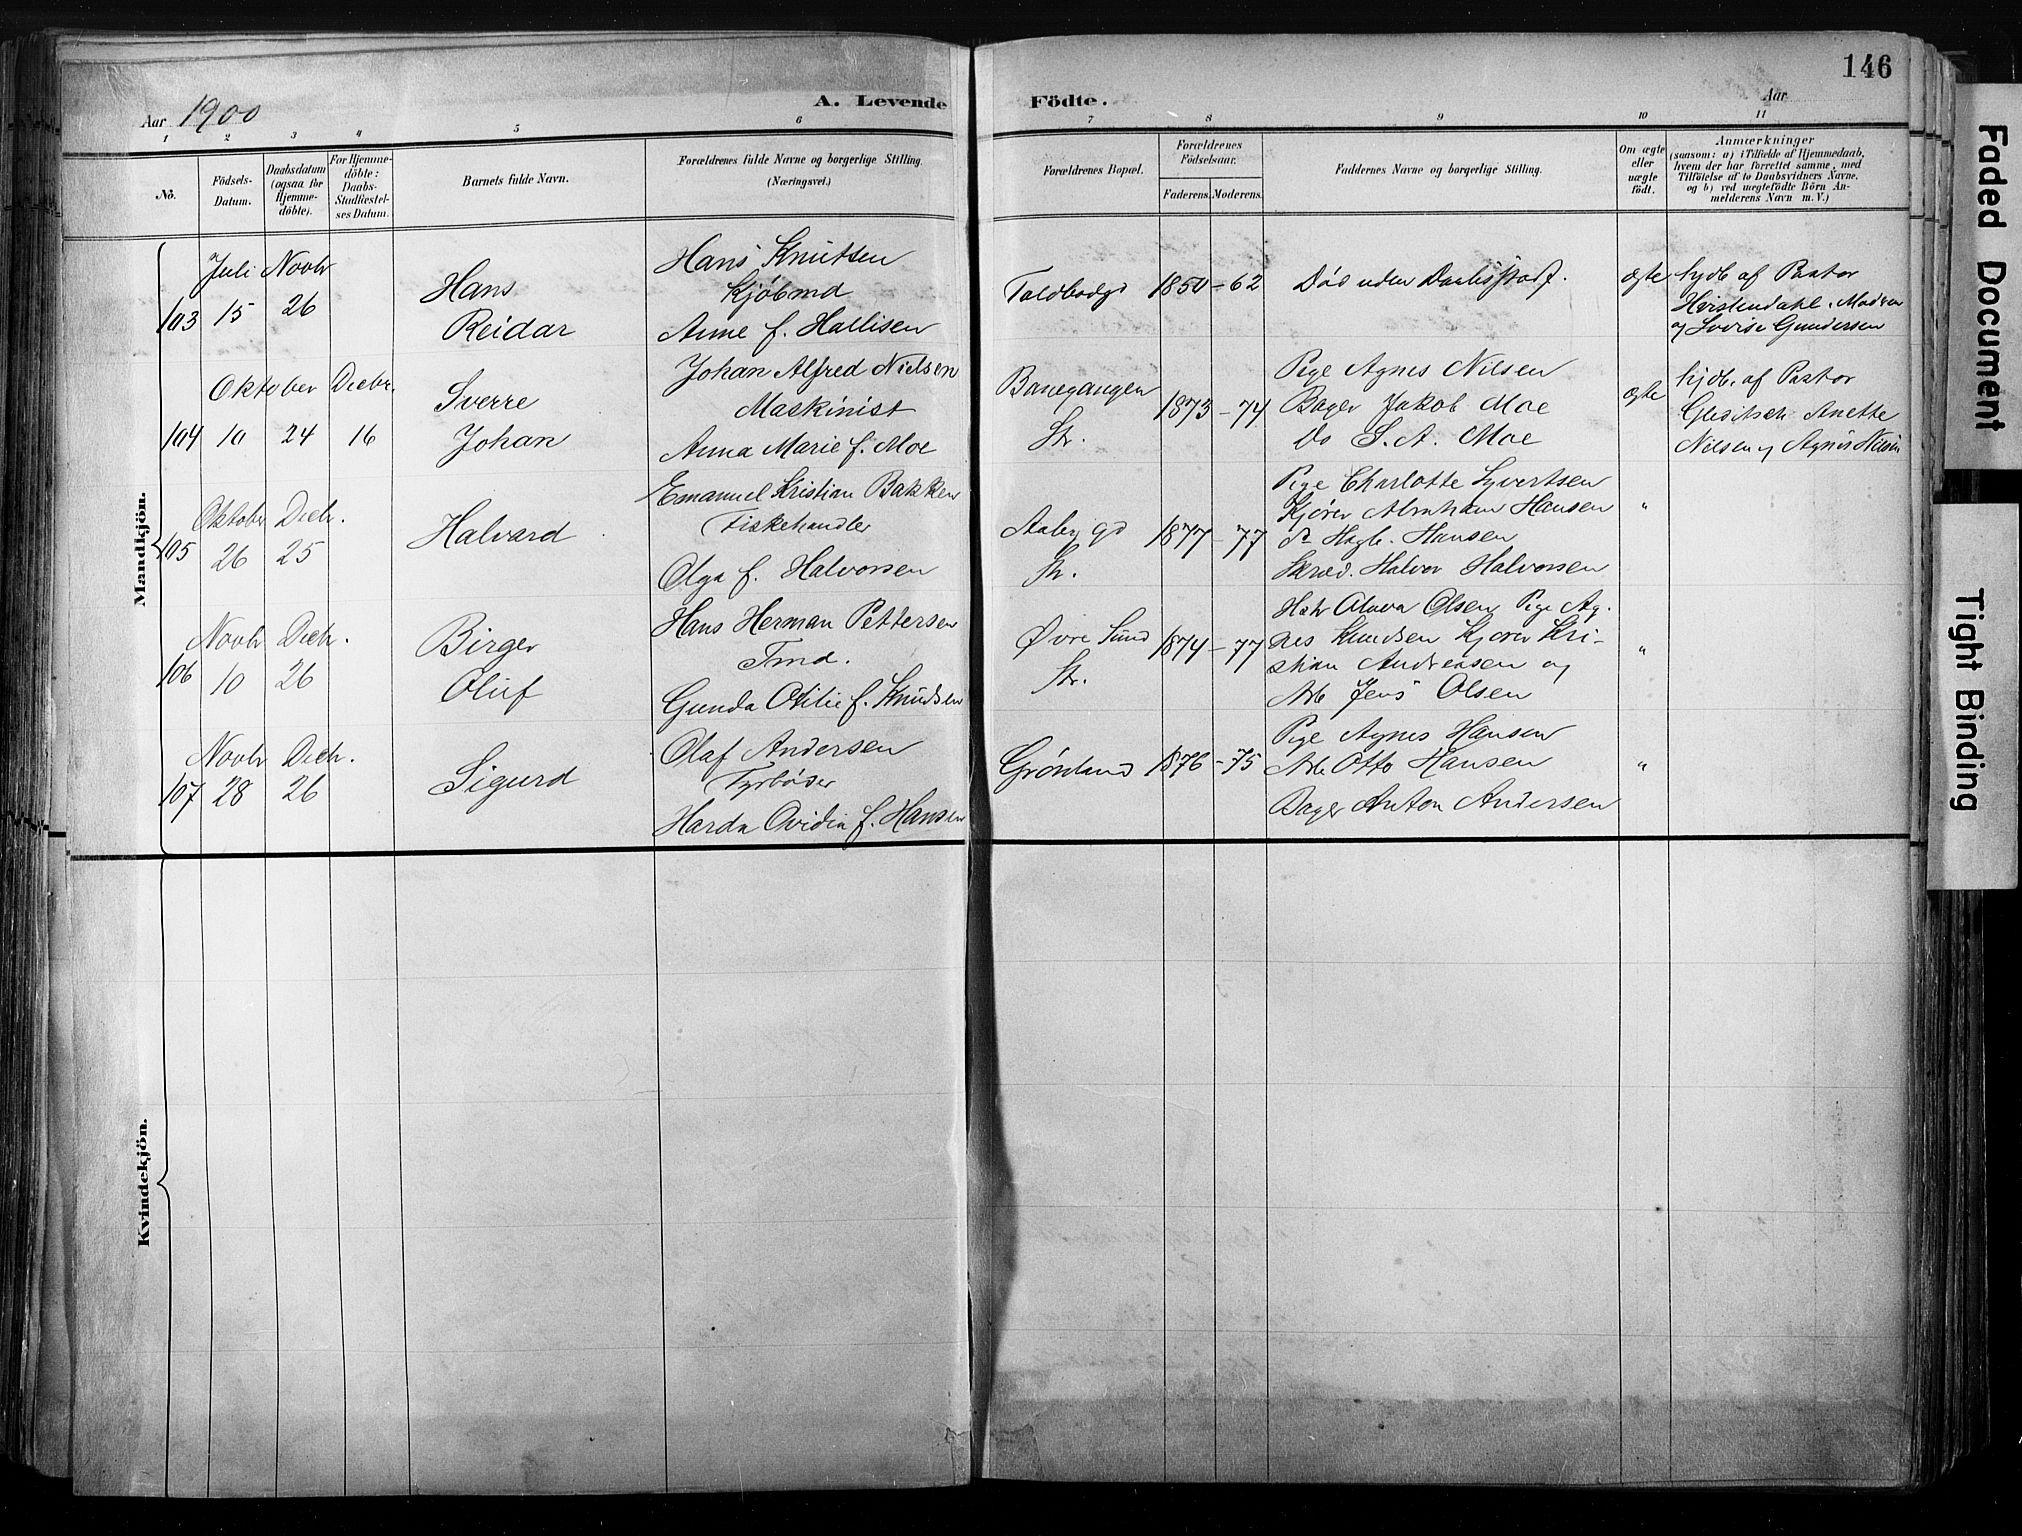 146
Aar 1900
A. Levende Födte.
Aar
1 2 3 4 5 6 7 8 9 10 11
No.
Födsels-
Datum.
Daabsdatum
(ogsaa for
Hjemme-
döbte).
For Hjemme-
döbte:
Daabs-
Stadfæstel-
ses Datum.
Barnets fulde Navn.
Forældrenes fulde Navne og borgerlige Stilling.
(Næringsvei.)
Forældrenes Bopæl.
Forældrenes
Födselsaar.
Faderens. Moderens.
Faddernes Navne og borgerlige Stilling.
Om ægte
eller
uægte
födt.
Anmærkninger
(saasom: a) i Tilfælde af Hjemmedaab,
hvem der har forrettet samme, med
Tilföielse af to Daabsvidners Navne,
og b) ved uægtefödte Börn An-
melderens Navn m. V.)
Mandkjön.
103
Juli Novbr
15 26
Hans
Reidar
Hans Knutsen
Kjøbmd
Anne f. Hallisen
Toldbodgd
1850 - 62
Død uden Daabsstadf.
ægte
hjdb af Pastor
Hvistendahl. Madsen
og Lovise Gundersen
104
Oktober Decbr.
10 24 16
Sverre
Johan
Johan Alfred Nielsen
Maskinist
Anna Marie f. Moe
Banegangen
Str.
1873 - 74
Pige Agnes Nilsen
Bager Jakob Moe
Do S. A. Moe
ægte
hjdb. af Pastor
Gleditsch Anette
Nilsen og Agnes Nilsen
105
Oktober Decbr.
26 25
Halvard
Emanuel Kristian Bakken
Fiskehandler
Olga f. Halvorsen
Aaby gd
Str.
1877 - 77
Pige Charlotte Syvertsen
Kjører Abraham Hansen
do Hagb. Hansen
Skræd. Halvor Halvorsen
"
106
Novbr Decbr.
10 26
Birger
Oluf
Hans Herman Pettersen
Tmd.
Gunda Otilie f. Knudsen
Øvre Sund
Str.
1874 - 77
Olava Olsen Pige Ag-
nes Knudsen Kjører Kri-
stian Andreasen og
Arb Jens Olsen
"
107
Novbr Decbr.
28 26
Sigurd
Olaf Andersen
Fyrbøder
Harda Ovidia f. Hansen
Grønland
1876 - 75
Pige Agnes Hansen
Arb Otto Hansen
Bager Anton Andersen
"
Kvindekjön.
Faded Document
Tight Binding